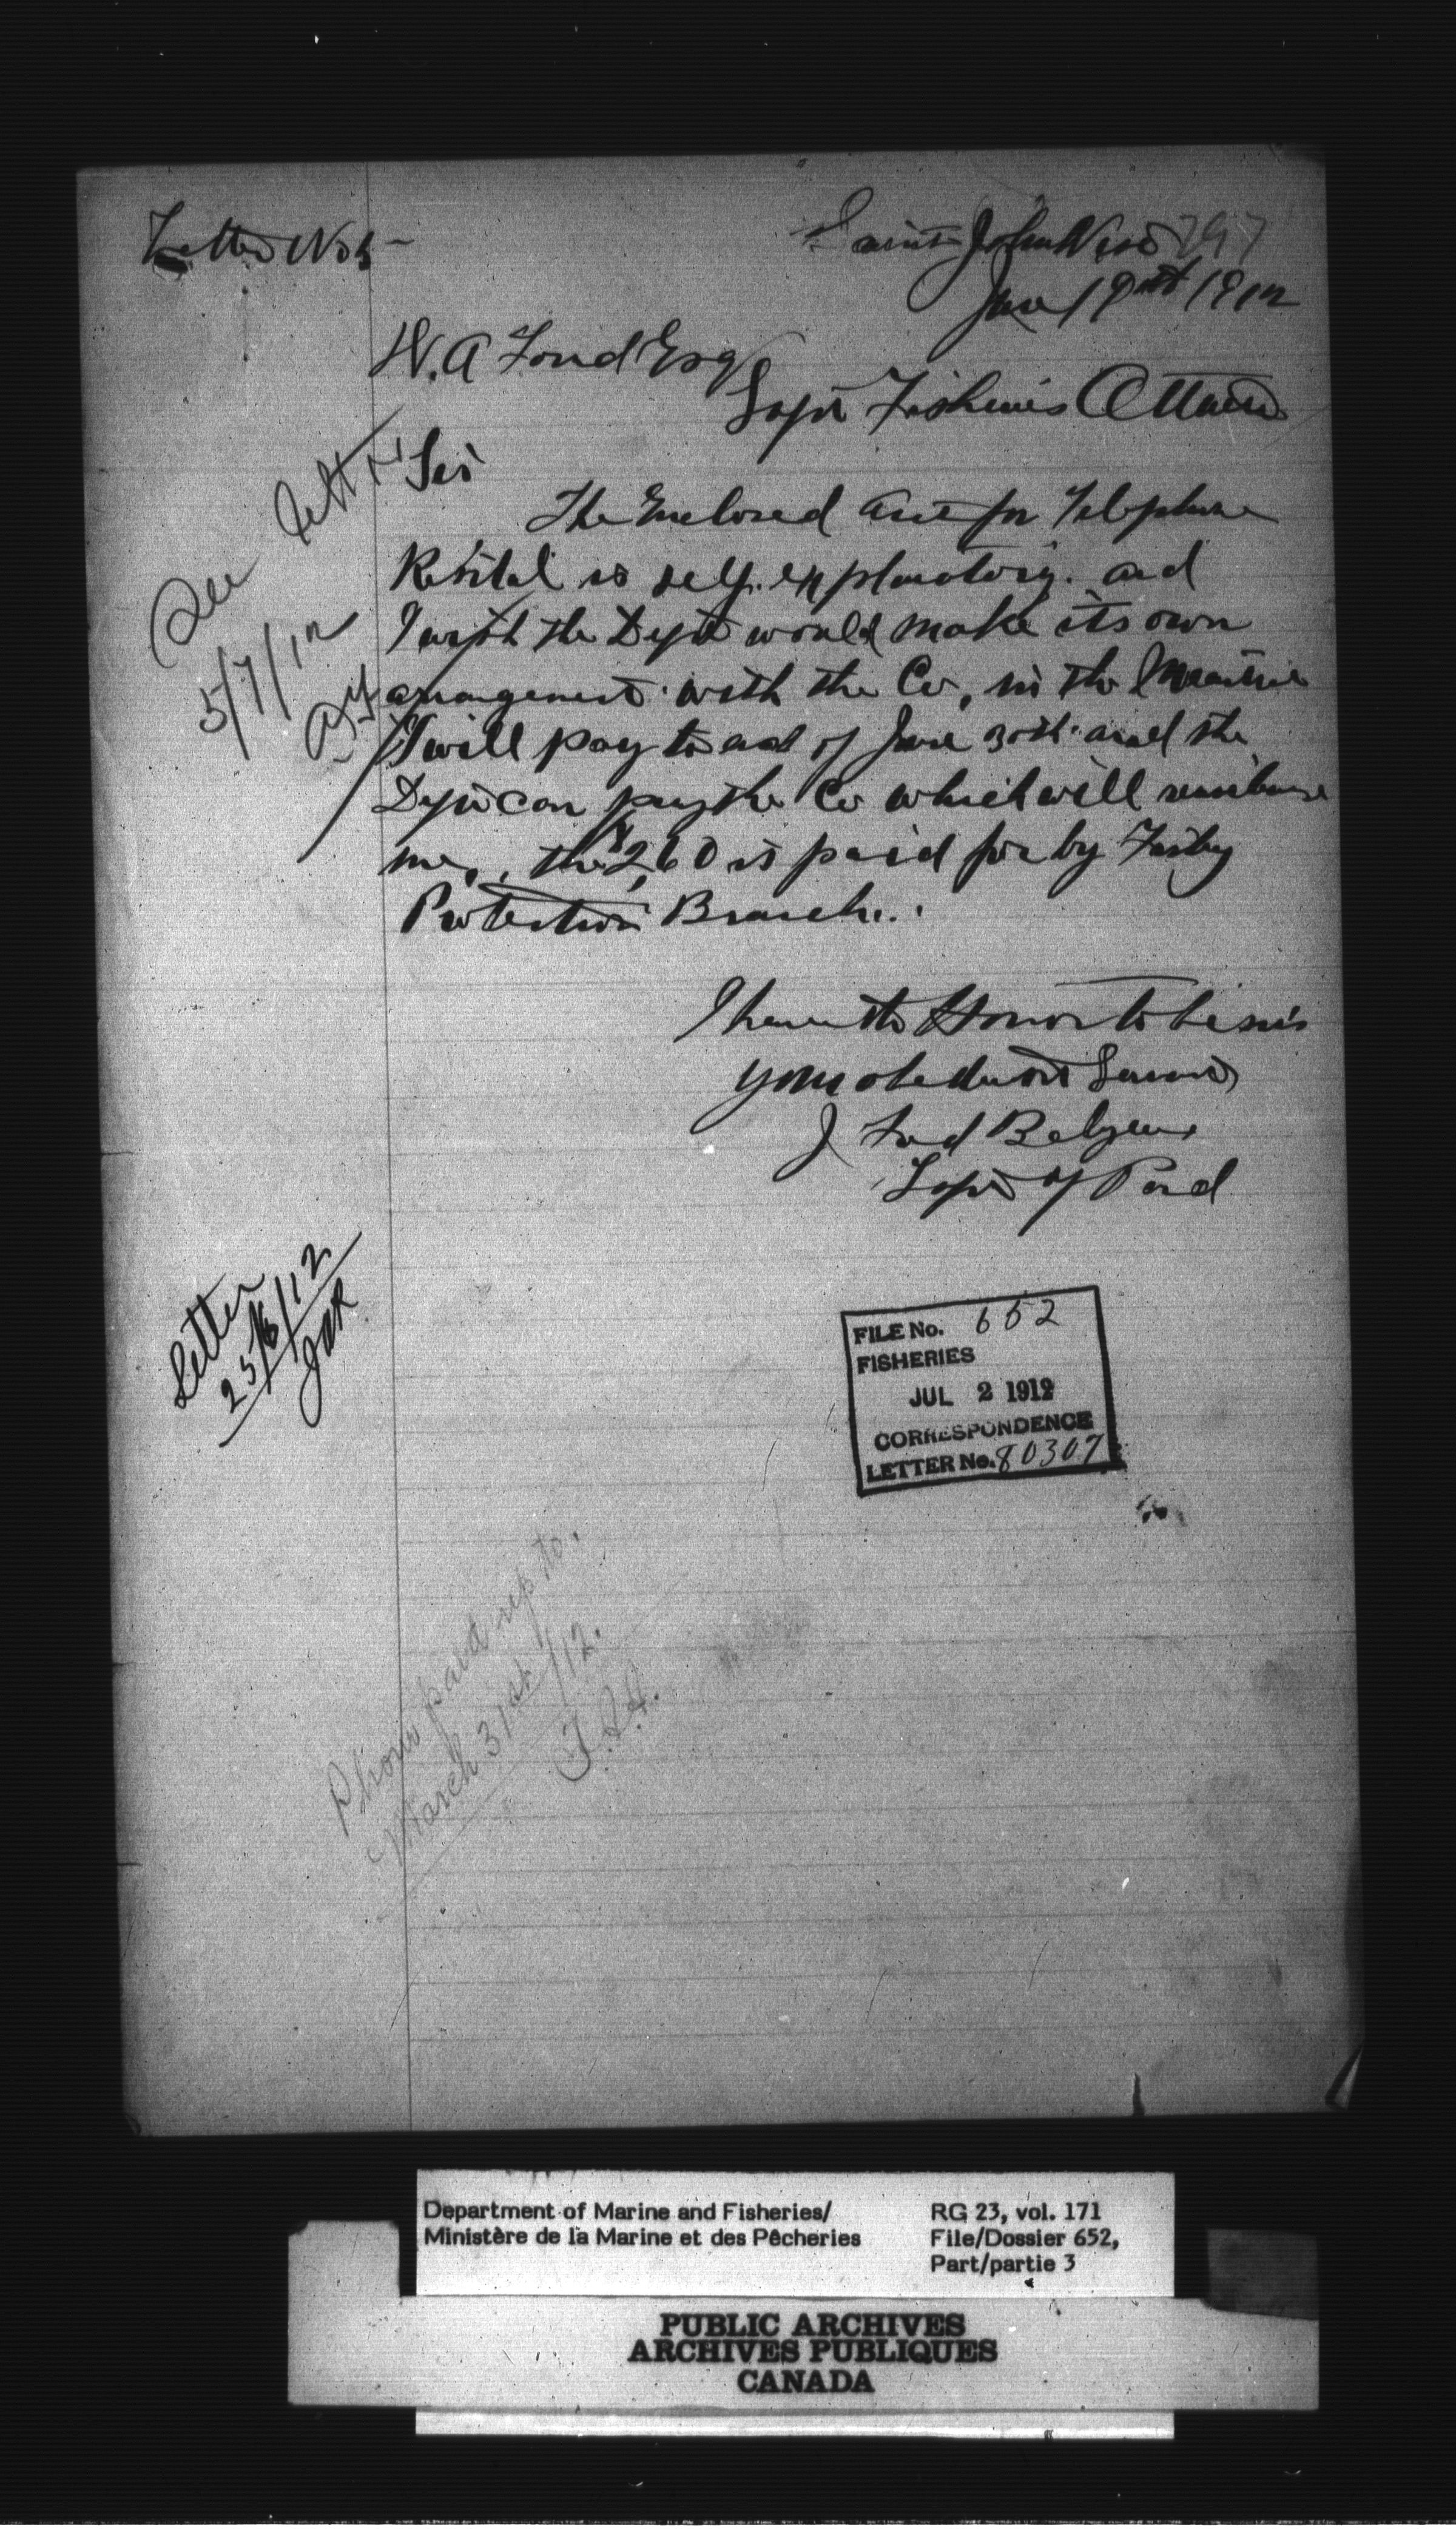 Letter No 5 -
Saint John West 297
June 19th 1912
W. A Found Esqr
Supt Fisheries Ottawa
Sir
The Enclosed acct for Telephone
Rental is self. explanatory. and
I wish the Dept would make its own
arrangement with the Co, in the Meantime
I will pay to end of June 30th and the
Dept can pay the Co which will reimburse
me, the $2,60 is paid for by Fishy
Protection Branch.
I have the Honor to be sir
your obedient Servant
J Fred Belyea
Supt of Pond
See letter
5/7/12
Letter
25/6/12
FILE No. 652
FISHERIES
JUL 2 1912
CORRESPONDENCE
LETTER No. 80307
Phone paid up to
March 31st/12.
Department of Marine and Fisheries/
Ministère de la Marine et des Pêcheries
RG 23, vol. 171
File/Dossier 652,
Part/partie 3
PUBLIC ARCHIVES
ARCHIVES PUBLIQUES
CANADA